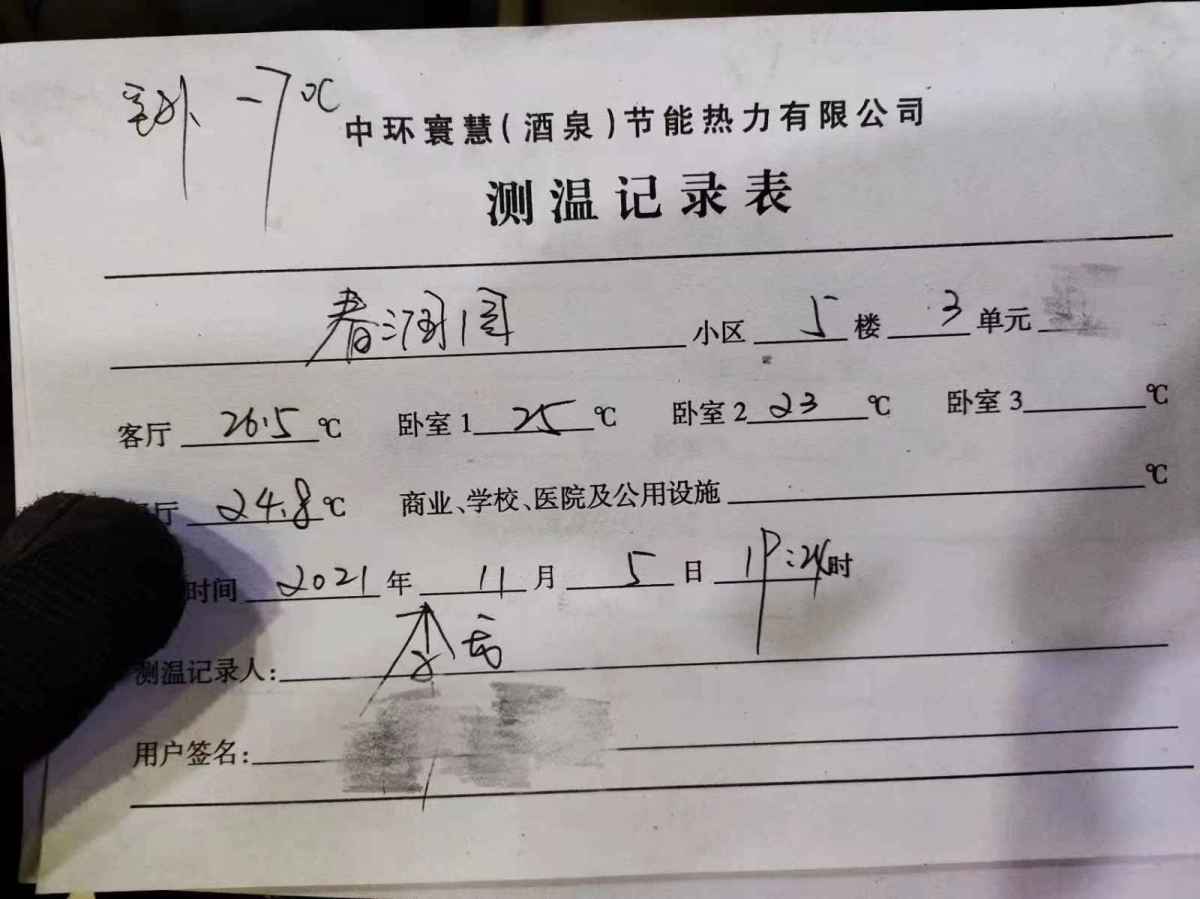 室外 -7℃
中环寰慧(酒泉)节能热力有限公司
测温记录表
春润园 小区 5 楼 3 单元
客厅 26.5 ℃ 卧室1 25 ℃ 卧室2 23 ℃ 卧室3 ℃
厅 24.8 ℃ 商业、学校、医院及公用设施 ℃
时间 2021 年 11 月 5 日 19:24时
测温记录人: 李
用户签名: